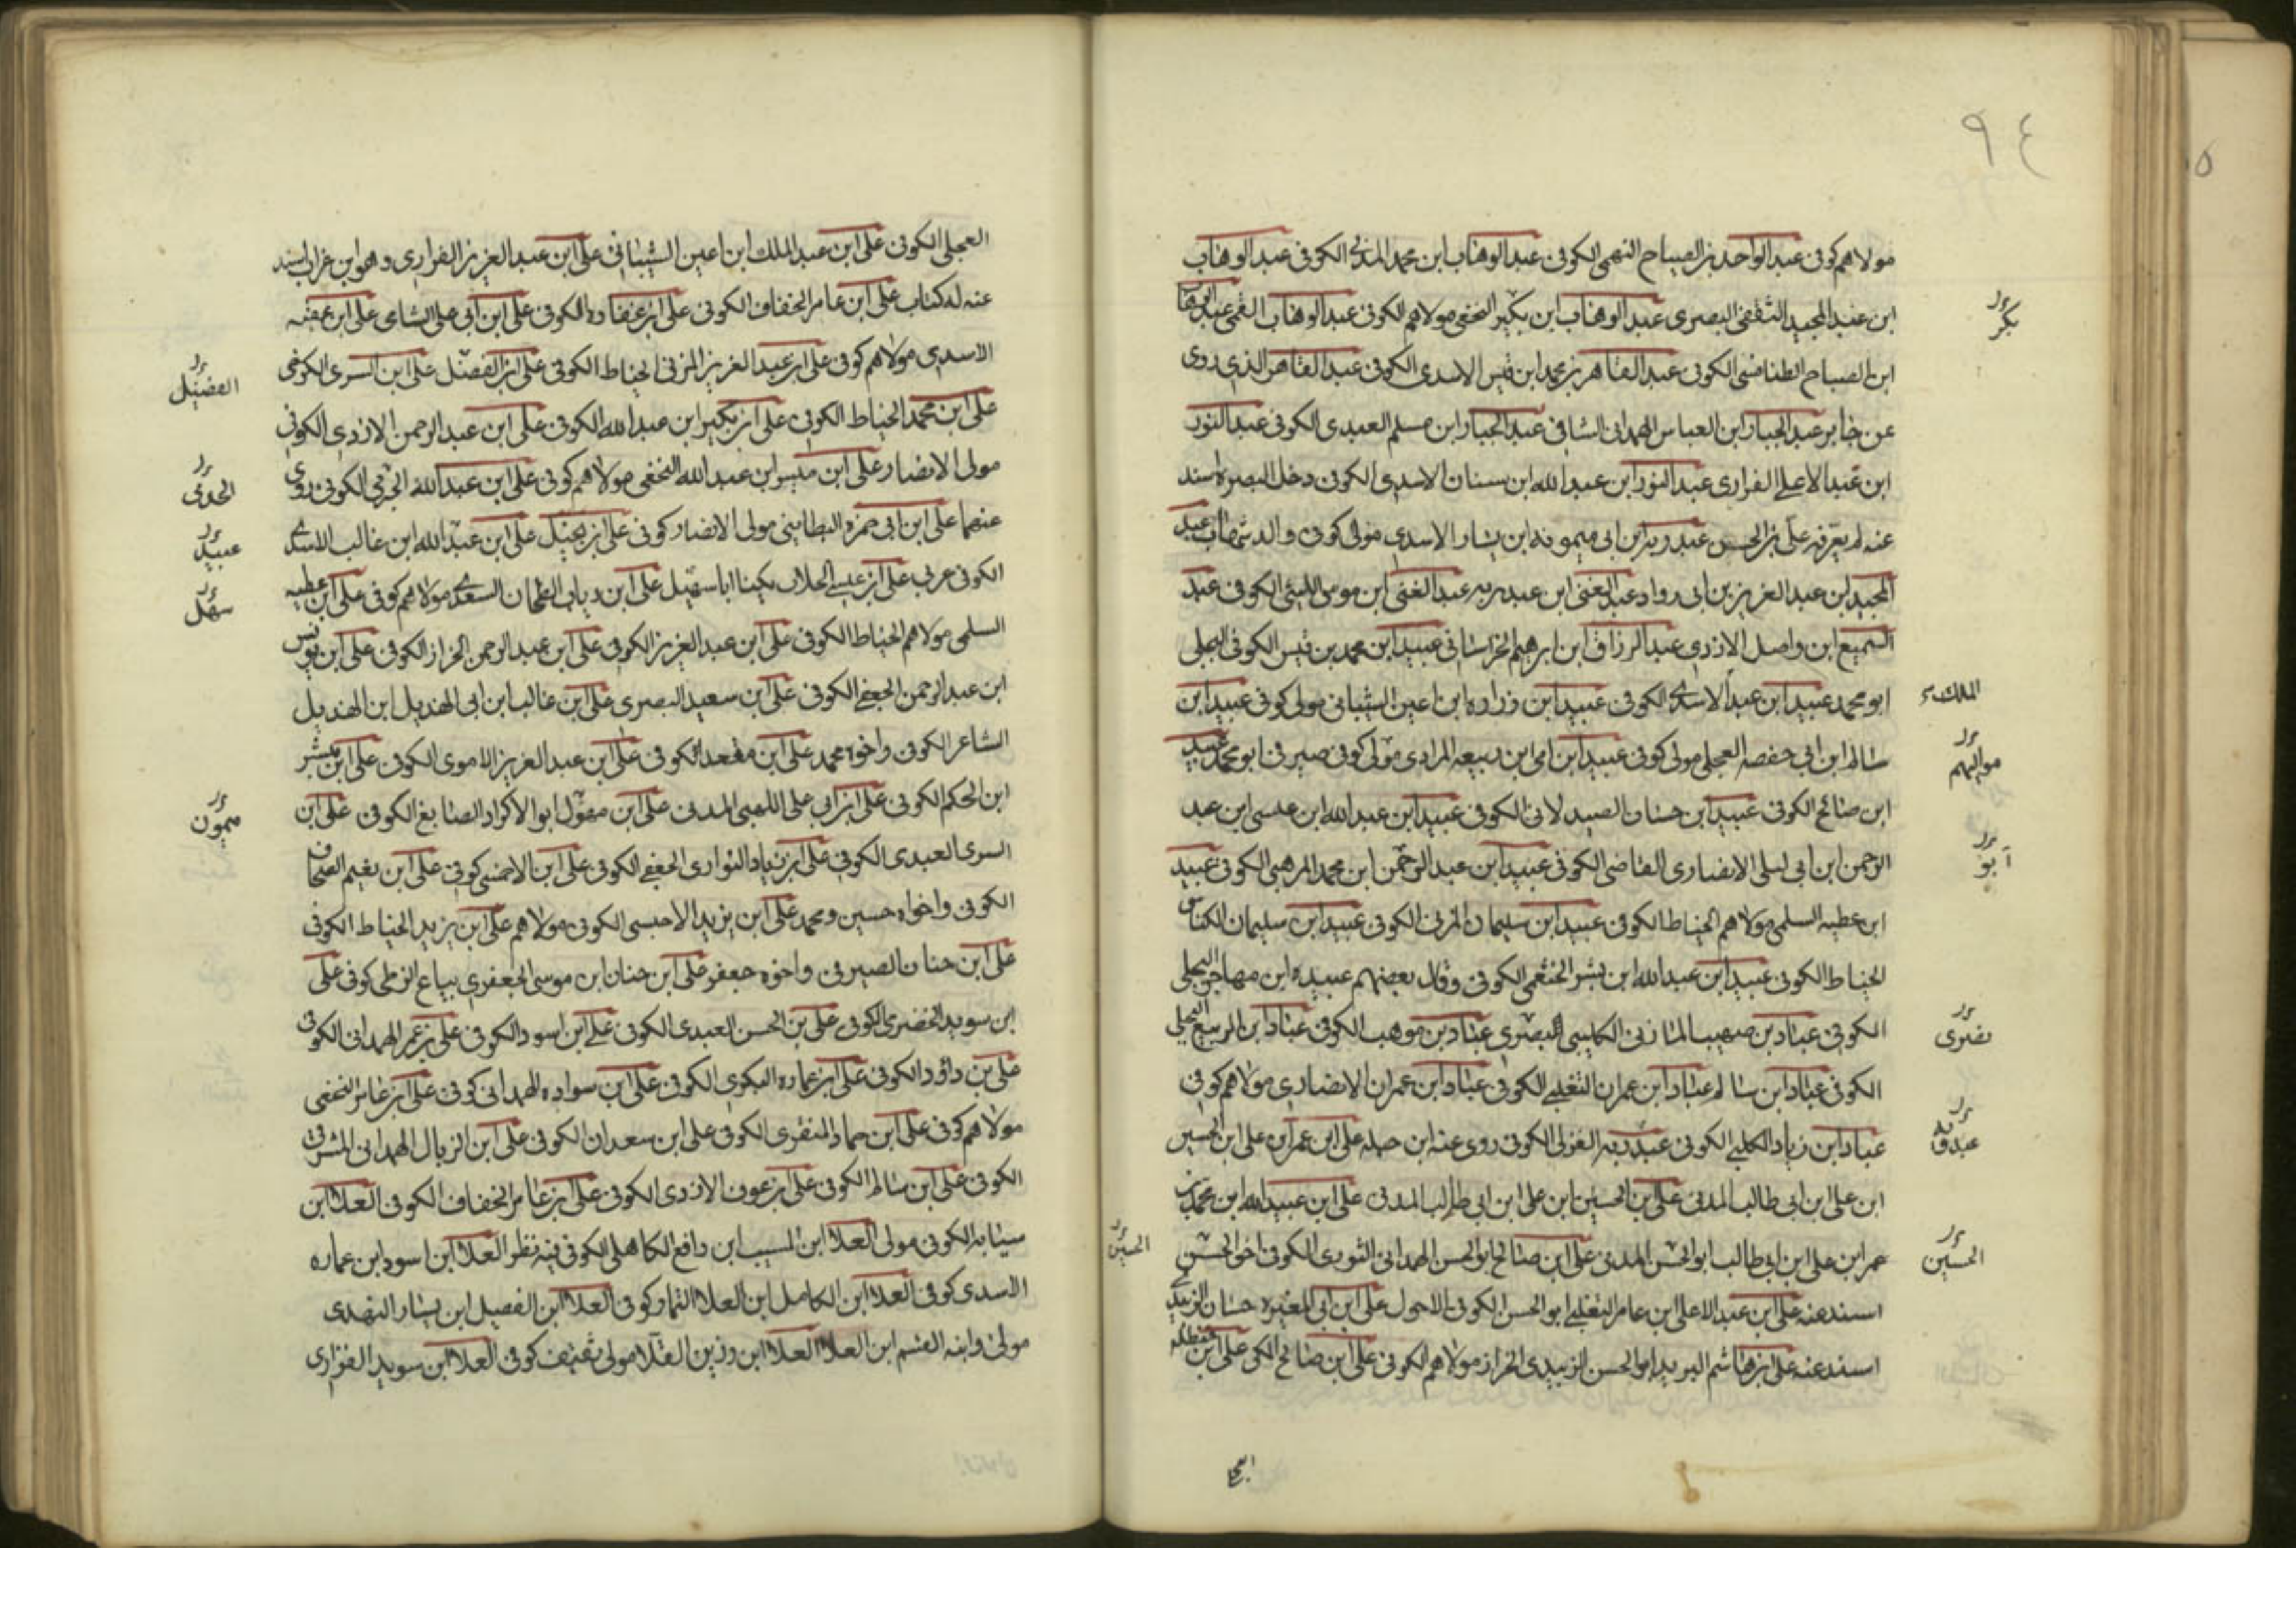 ٩٤
مولاهم كوفى عبد الواحد بن الصباح النهمى الكوفى عبد الوهاب ابن محمد المدنى الكوفى عبد الوهاب
ابن عبد المجيد الثقفى البصرى عبد الوهاب ابن بكير النخعى مولاهم الكوفى عبد الوهاب القمى عبد الوهاب
بكر
ابن الصباح الطنافسى الكوفى عبد القاهر بن محمد ابن قيس الاسدى الكوفى عبد القاهر الذى روى
عن جابر عبد الجبار ابن العباس الهمدانى الشافى عبد الجبار ابن مسلم العبدى الكوفى عبد النور
ابن عبد الاعلى الفزارى عبد النور ابن عبد الله ابن سنان الاسدى الكوفى دخل البصره اسند
عنه لم يعرفه على بن الحسن عبد ربه ابن ابى ميمونه ابن يسار الاسدى مولى كوفى والد شهاب عبد
المجيد ابن عبد العزيز بن ابى رواد عبد الغنى ابن عبد ربه عبد الغنى ابن موسى الليثى الكوفى عبد
السميع ابن واصل الازدى عبد الرزاق ابن ابرهيم الخراسانى عبيد ابن محمد بن قيس الكوفى البجلى
ابو محمد عبيد ابن عبد الاسدى الكوفى عبيد ابن زراره ابن اعين الشيبانى مولى كوفى عبيد ابن
الملك
سالم ابن ابى حفصه العجلى مولى كوفى عبيد ابن امى ابن ربيعه المرادى مولى كوفى صيرفى ابو محمد عبيد
مواليهم
ابن صالح الكوفى عبيد ابن حسان الصيدلانى الكوفى عبيد ابن عبد الله ابن عيسى ابن عبد
الرحمن ابن ابى ليلى الانصارى القاضى الكوفى عبيد ابن عبد الرحمن ابن محمد المرهبى الكوفى عبيد
ابو
ابن عطيه السلمى مولاهم الحناط الكوفى عبيد ابن سليمان المزنى الكوفى عبيد ابن سليمان الكناس
الحناط الكوفى عبيد ابن عبد الله ابن بشر الخثعمى الكوفى وقال بعضهم عبيده ابن مهاجر البجلى
الكوفى عباد بن صهيب المازنى الكليبى البصرى عباد بن موهب الكوفى عباد ابن الربيع البجلى
بصرى
الكوفى عباد ابن سالم عباد ابن عمران التغلبى الكوفى عباد ابن عمران الانصارى مولاهم كوفى
عباد ابن زياد الكلبى الكوفى عبد ربه الغزلى الكوفى روى عنه ابن جبله على ابن عمر ابن على ابن الحسين
ابن على ابن ابى طالب المدنى على بن الحسين ابن على ابن ابى طالب المدنى على ابن عبيد الله ابن محمد بن
عمر ابن على ابن ابى طالب ابو الحسن المدنى على ابن صالح ابو الحسن الهمدانى الثورى الكوفى اخو الحسن
الحسين
الحسين
اسند عنه على ابن عبد الاعلى ابن عامر الثعلبى ابو الحسن الكوفى الاحول على ابن ابى المغيره حسان الزبيدى
اسند عنه على ابن هاشم البريد ابو الحسن الزبيدى الخزاز مولاهم الكوفى على ابن صالح المكى على ابن حنظله
العجلى
العجلى الكوفى على ابن عبد الملك ابن اعين الشيبانى على ابن عبد العزيز الفزارى وهو ابن غراب اسند
عنه له كتاب على ابن عامر الخفاف الكوفى على ابن عفاره الكوفى على ابن ابى على الشامى على ابن عقبه
الاسدى مولاهم كوفى على ابن عبد العزيز المزنى الحناط الكوفى على ابن الفضل على ابن السرى الكرخى
الفضيل
على ابن محمد الحناط الكوفى على ابن بكير ابن عبد الله الكوفى على ابن عبد الرحمن الازدى الكوفى
مولى الانصار على ابن ميسر ابن عبد الله النخعى مولاهم كوفى على ابن عبد الله الجرمى الكوفى روى
عنهما على ابن ابى حمزه البطاينى مولى الانصار كوفى على ابن بجيل على ابن عبد الله ابن غالب الاسدى
عبيد
الكوفى عربى على ابن عيسى الجلاب يكنا ابا سهيل على ابن دياب الطحان السعدى مولاهم كوفى على ابن عطيه
سهل
السلمى مولاهم الحناط الكوفى على ابن عبد العزيز الكوفى على ابن عبد الرحمن الخزاز الكوفى على ابن يونس
ابن عبد الرحمن الجعفى الكوفى على ابن سعيد البصرى على ابن غالب ابن ابى الهذيل ابن الهذيل
الشاعر الكوفى واخوه محمد على ابن مقعد الكوفى على ابن عبد العزيز الاموى الكوفى على ابن مبشر
ابن الحكم الكوفى على ابن ابى على اللهبى المدنى على ابن مقول ابو الاكراد الصايغ الكوفى على ابن
ميمون
السرى العبدى الكوفى على ابن زياد التوارى الجعفى الكوفى على ابن الاحمسى كوفى على ابن نعيم الصحاف
الكوفى واخواه حسين ومحمد على ابن يزيد الاحبسى الكوفى مولاهم على ابن يزيد الحناط الكوفى
على ابن حنان الصيرفى واخوه جعفر على ابن حنان ابن موسى الجعفرى بياع الزطى كوفى على
ابن سويد الحضرمى الكوفى على بن الحسن العبدى الكوفى على ابن اسود الكوفى على بن عمر الهمدانى الكوفى
على بن داؤد الكوفى على ابن عماره البكرى الكوفى على ابن سواده الهمدانى كوفى على ابن عامر النخعى
مولاهم كوفى على ابن حماد المنقرى الكوفى على ابن سعدان الكوفى على ابن الزبال الهمدانى المشرقى
الكوفى على ابن سالم الكوفى على ابن عوف الازدى الكوفى على ابن عامر الخفاف الكوفى العلا ابن
سيابه الكوفى مولى العلا ابن المسيب ابن رافع الكاهلى الكوفى فيه نظر العلا ابن اسود ابن عماره
الاسدى كوفى العلا ابن الكامل ابن العلا التمار كوفى العلا ابن الفضيل ابن يسار النهدى
مولى وابنه القسم ابن العلا العلا ابن رزين القلا مولى ثقيف كوفى العلا ابن سويد الفزارى